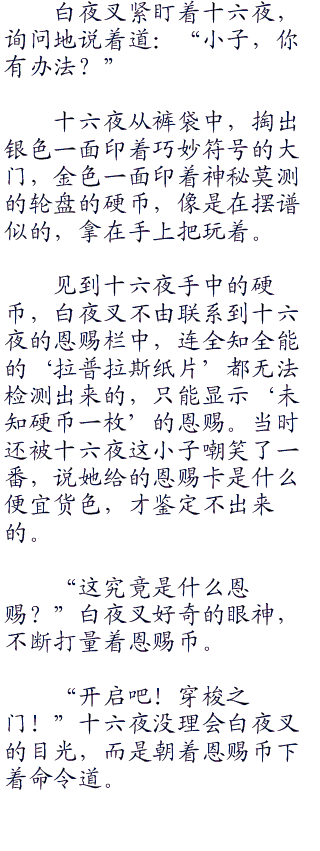 白夜叉紧盯着十六夜，
询问地说着道：“小子，你
有办法？”
十六夜从裤袋中，掏出
银色一面印着巧妙符号的大
门，金色一面印着神秘莫测
的轮盘的硬币，像是在摆谱
似的，拿在手上把玩着。
见到十六夜手中的硬
币，白夜叉不由联系到十六
夜的恩赐栏中，连全知全能
的‘拉普拉斯纸片’都无法
检测出来的，只能显示‘未
知硬币一枚’的恩赐。当时
还被十六夜这小子嘲笑了一
番，说她给的恩赐卡是什么
便宜货色，才鉴定不出来
的。
“这究竟是什么恩
赐？”白夜叉好奇的眼神，
不断打量着恩赐币。
“开启吧！穿梭之
门！”十六夜没理会白夜叉
的目光，而是朝着恩赐币下
着命令道。